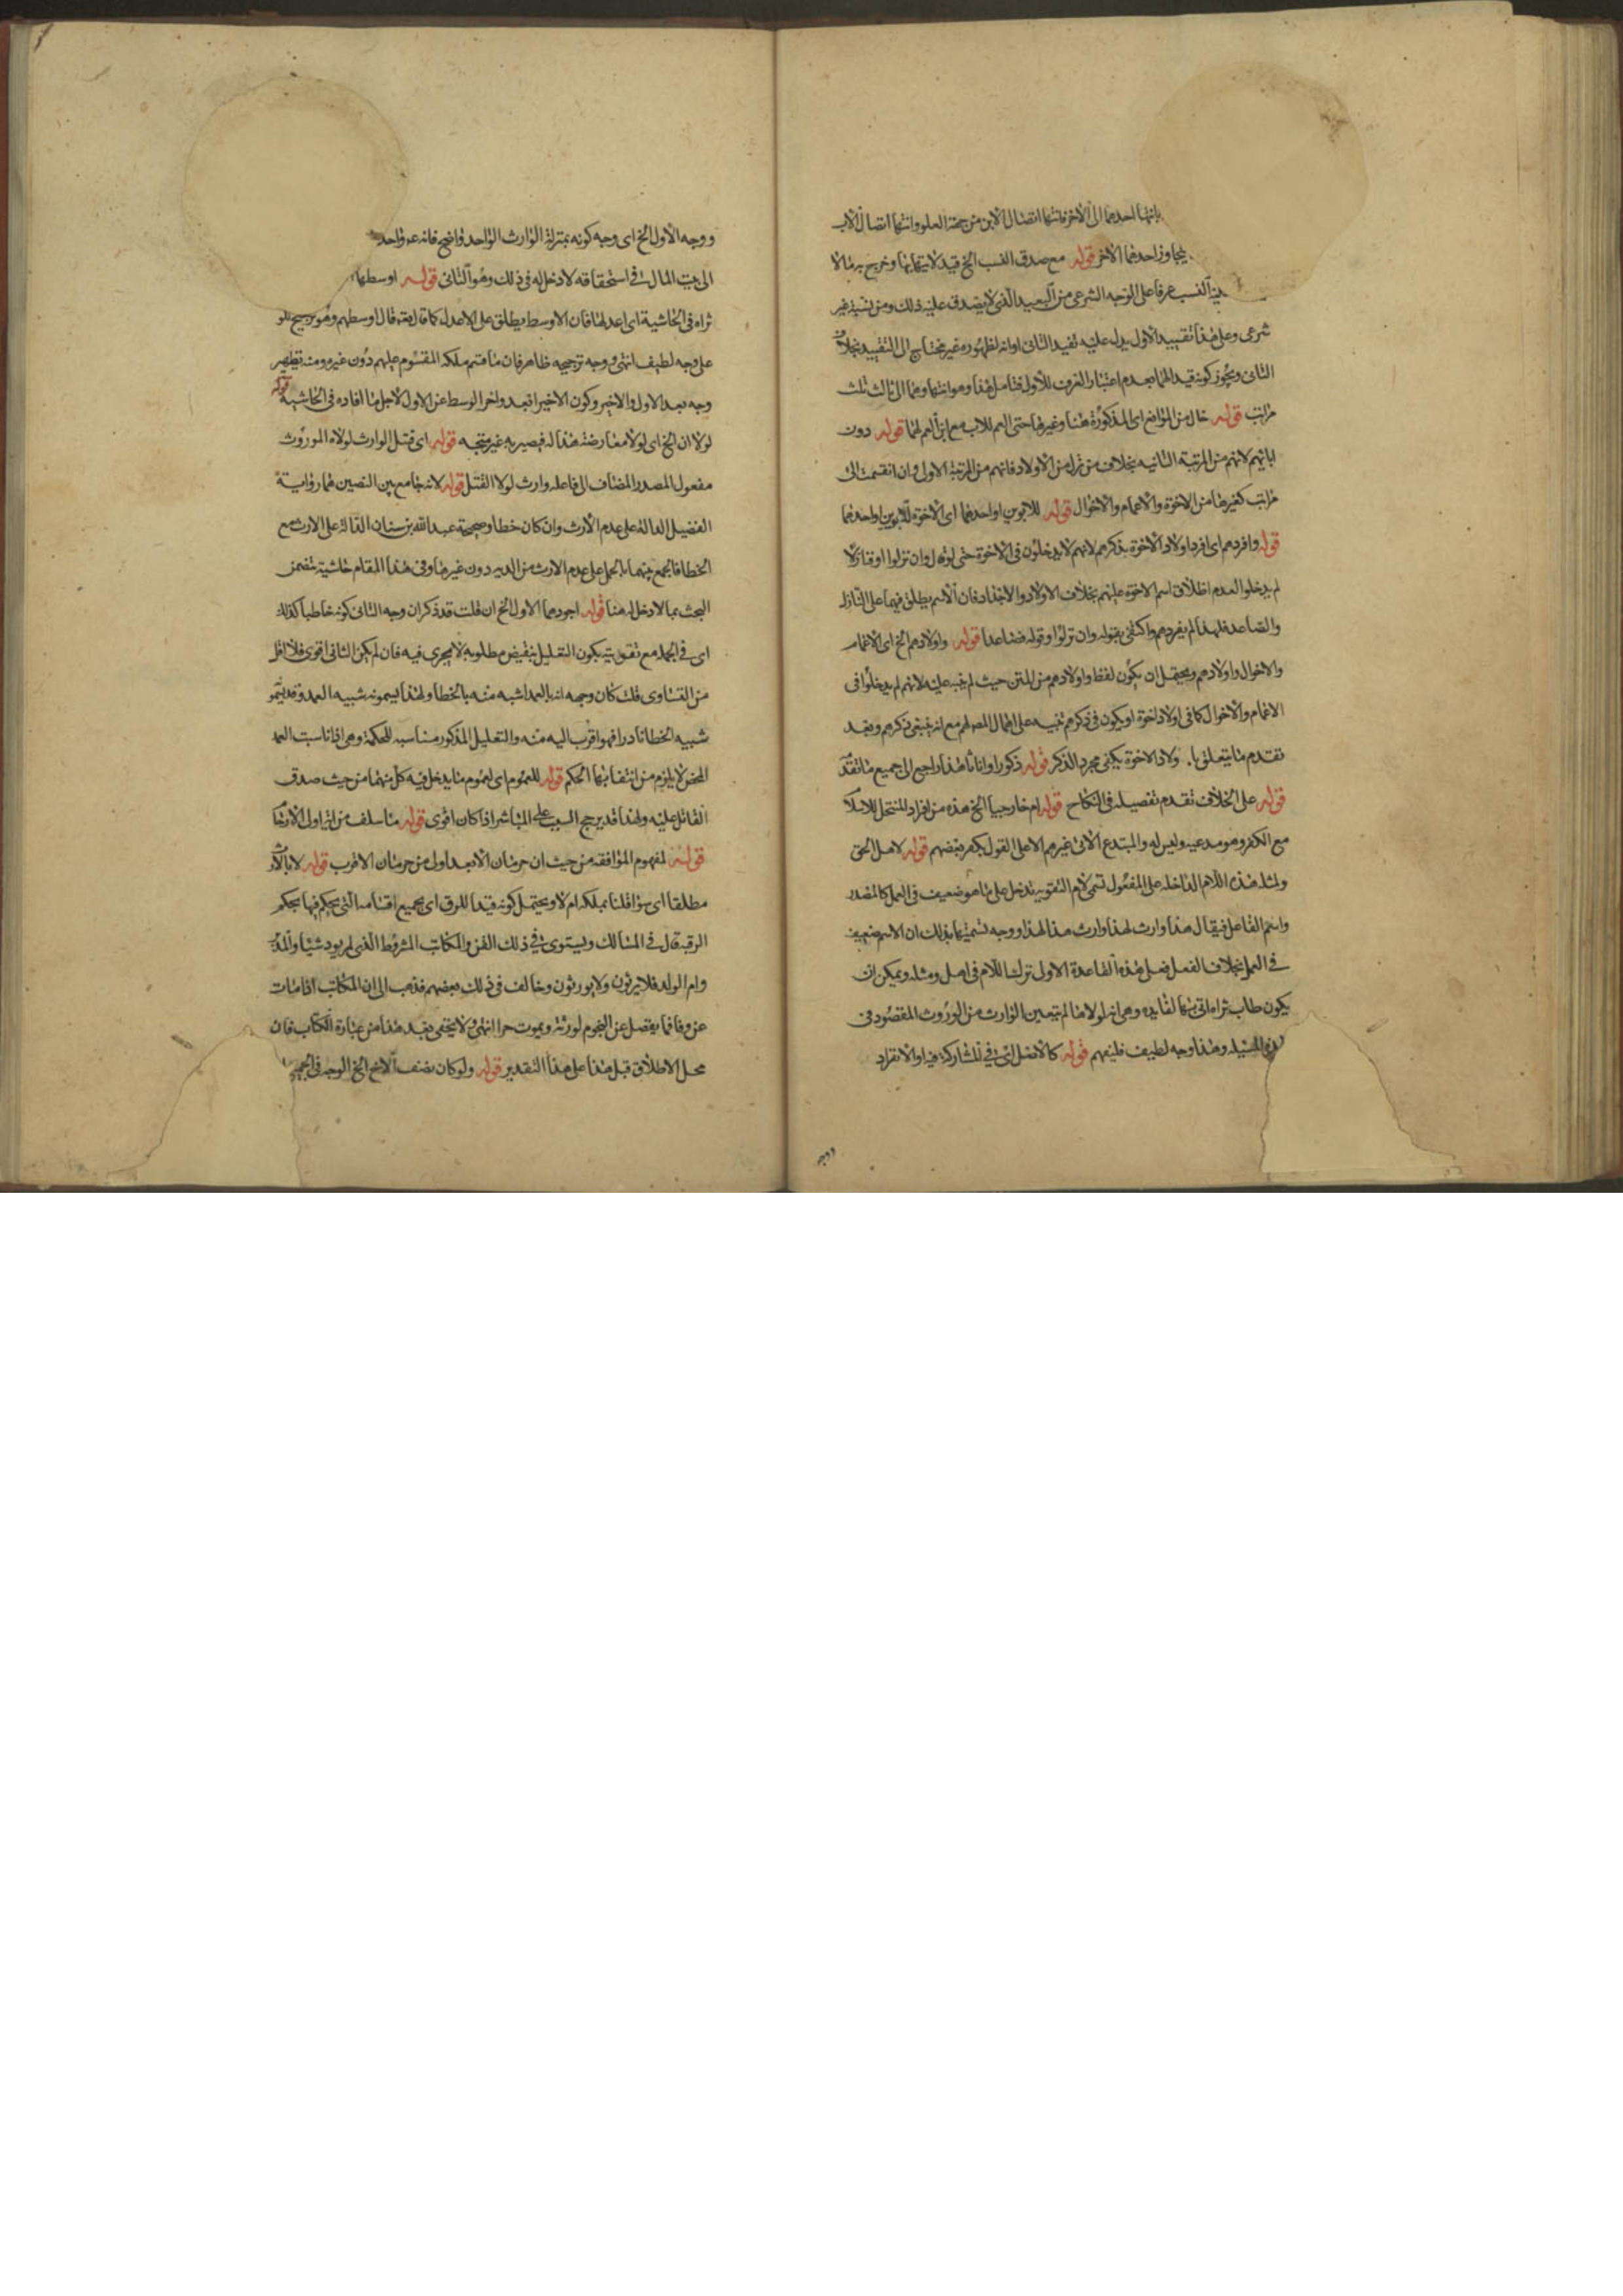 بانتهاء احدهما الى الآخر فانتهاء اتصال الابن من جهة العلو وانتهاء اتصال الاب
يجاوز احدهما الآخر قوله مع صدق النسب الخ قيد لانتهائهما وخرج به مالا
النسب عرفا على الوجه الشرعي من البعيد الذي لا يصدق عليه ذلك ومن نسبة غير
شرعي وعلى هذا تقييد الاول يدل عليه تقيد الثاني اوانه لظهوره غير محتاج الى التقييد بخلاف
الثاني ويجوز كونه قيدا لهما بعدم اعتبار العرف للأول فتامل هذا وهو انتهاوهما الى ثالث ثلث
مراتب قوله خال من الموانع اي المذكورة هنا وغيرها حتى العم للاب مع ابن العم لهما قوله دون
ابائهم لانهم من المرتبة الثانيه بخلاف من نزل من الاولاد فانهم من المرتبة الاولى وان انقسمت الى
مراتب كغيرها من الاخوة والاعمام والاخوال قوله للابوين او احدهما اي الاخوة للابوين او احدهما
قوله وافردهم اي افرد اولاد الاخوة بذكرهم لانهم لا يدخلون في الاخوة حتى لو قال وان نزلوا او فنازلا
لم يدخلوا لعدم اطلاق اسم الاخوة عليهم بخلاف الاولاد والاجداد فان الاسم يطلق فيهما على النازل
والصاعد فلهذا لم يفردهم واكتفى بقوله وان نزلوا وقوله فصاعدا قوله واولادهم الخ اي الاعمام
والاخوال واولادهم ويحتمل ان يكون لفظ واولادهم من المتن حيث لم ينبه عليه لانهم لم يدخلوا في
الاعمام والاخوال كما في اولاد اخوة او يكون في ذكرهم تنبيه على اهمال المص لهم مع انه ينبغي ذكرهم وبعد
تقدم ما يتعلق با ولاد الاخوة يكفي مجرد الذكر قوله ذكورا واناثا هذا راجع الى جميع ما تقدم
قوله على الخلاف تقدم تفصيله في النكاح قوله ام خارجيا الخ هذه من افراد المنتحل للاسلام
مع الكفر وهو مدعيه وليس له والمبتدع الاتي غيرهم الا على القول بكفر بعضهم قوله لاهل الحق
ولمثله هذه اللام الداخله على المفعول تسمى لام التقويه تدخل على ما هو ضعيف في العمل كالمصدر
واسم الفاعل فيقال هذا وارث لهذا وارث هذا لهذا ووجه تسميتها بذلك ان الاسم ضعيف
في العمل بخلاف الفعل فعلى هذه القاعدة الاولى ترك اللام في اهل ومثله ويمكن ان
يكون طاب ثراه اتى بها لفايده وهي انه لولاها لم يتعين الوارث من الموروث المقصود في
المسئله وهذا وجه لطيف فليفهم قوله كالاصل اي في المشاركه فيه او الانفراد
ووجه
ووجه الاول الخ اي وجه كونه بمنزلة الوارث الواحد واضح فانه واحد
الى بيت المال في استحقاقه لا دخل له في ذلك وهو الثاني قوله اوسطها
ثراه في الحاشية اي اعدلها فان الاوسط يطلق على الاعدل كما قال تعه قال اوسطهم وهو ترجيح للو
على وجه لطيف انتهى ووجه ترجيحه ظاهر فان ما قسم ملكه المقسوم عليهم دون غيره ومنه تظهر
وجه بعد الاول والاخير وكون الاخير ابعد واخر الوسط عن الاول لاجل ما افاده في الحاشية قوله
لولا ان الخ اي لولا معارضة هذا له فيصير به غير متجه قوله اي قتل الوارث لولاه الموروث
مفعول المصدر المضاف الى فاعله وارث لولا القتل قوله لانه جامع بين النصين هما رواية
الفضيل الدالة على عدم الارث وان كان خطا وصحيحة عبد الله بن سنان الدالة على الارث مع
الخطا فالجمع بينهما بالحمل على عدم الارث من الدية دون غيرها وفي هذا المقام حاشية تتضمن
البحث بما لا دخل له هنا قوله اجودهما الاول الخ ان قلت قد ذكر ان وجه الثاني كونه خاطبا كذلك
اي في الجملة مع تقويته بكون التعليل بنقيض مطلوبه لا يجري فيه فان لم يكن الثاني اقوى فلا اقل
من التساوى قلت كان وجهه انه بالعمد اشبه منه بالخطا ولهذا يسمونه شبيه العمد وقد يسمو
شبيه الخطا نادرا فهو اقرب اليه منه والتعليل المذكور مناسبه للحكمة وهي اذا ناسبت العمد
المحض لا يلزم من انتفائها الحكم قوله للعموم اي لعموم ما يدخل فيه كل منهما من حيث صدق
القاتل عليه ولهذا قد يرجح السبب على المباشر اذا كان اقوى قوله ما سلف من انه اولى الارث
قوله لمفهوم الموافقة من حيث ان حرمان الابعد اولى من حرمان الاقرب قوله لا بالارث
مطلقا اي سواء قلنا بملكه ام لا ويحتمل كونه قيدا للرق اي بجميع اقسامه التي يحكم فيها بحكم
الرقبة قال في المسالك ويستوى في ذلك القن والمكاتب المشروط الذي لم يود شيئا والمدبر
وام الولد فلا يرثون ولا يورثون وخالف في ذلك بعضهم فذهب الى ان المكاتب اذا مات
عن وفا فما يفضل عن النجوم لورثته ويموت حرا انتهى ولا يخفى بعد هذا من عبارة الكتاب فان
محل الاطلاق قبل هذا على هذا التقدير قوله ولو كان نصف الاخ الخ الوجه في الجميع